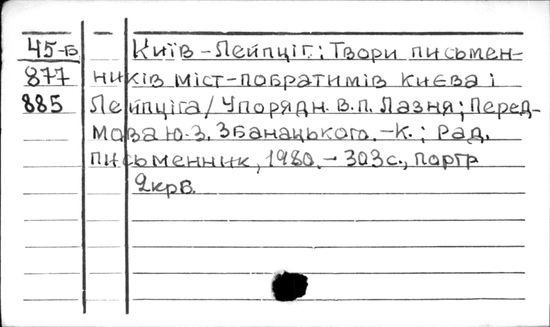 45-Б Київ-Лейпціг: Твори письмен-
877 ників міст-побратимів Києва і
885 Лейпціга/Упорядн. В.П. Лазня; Перед-
мова Ю.З. Збанацького.-К.; Рад.
письменник, 1980.-303с., портр
2крв.